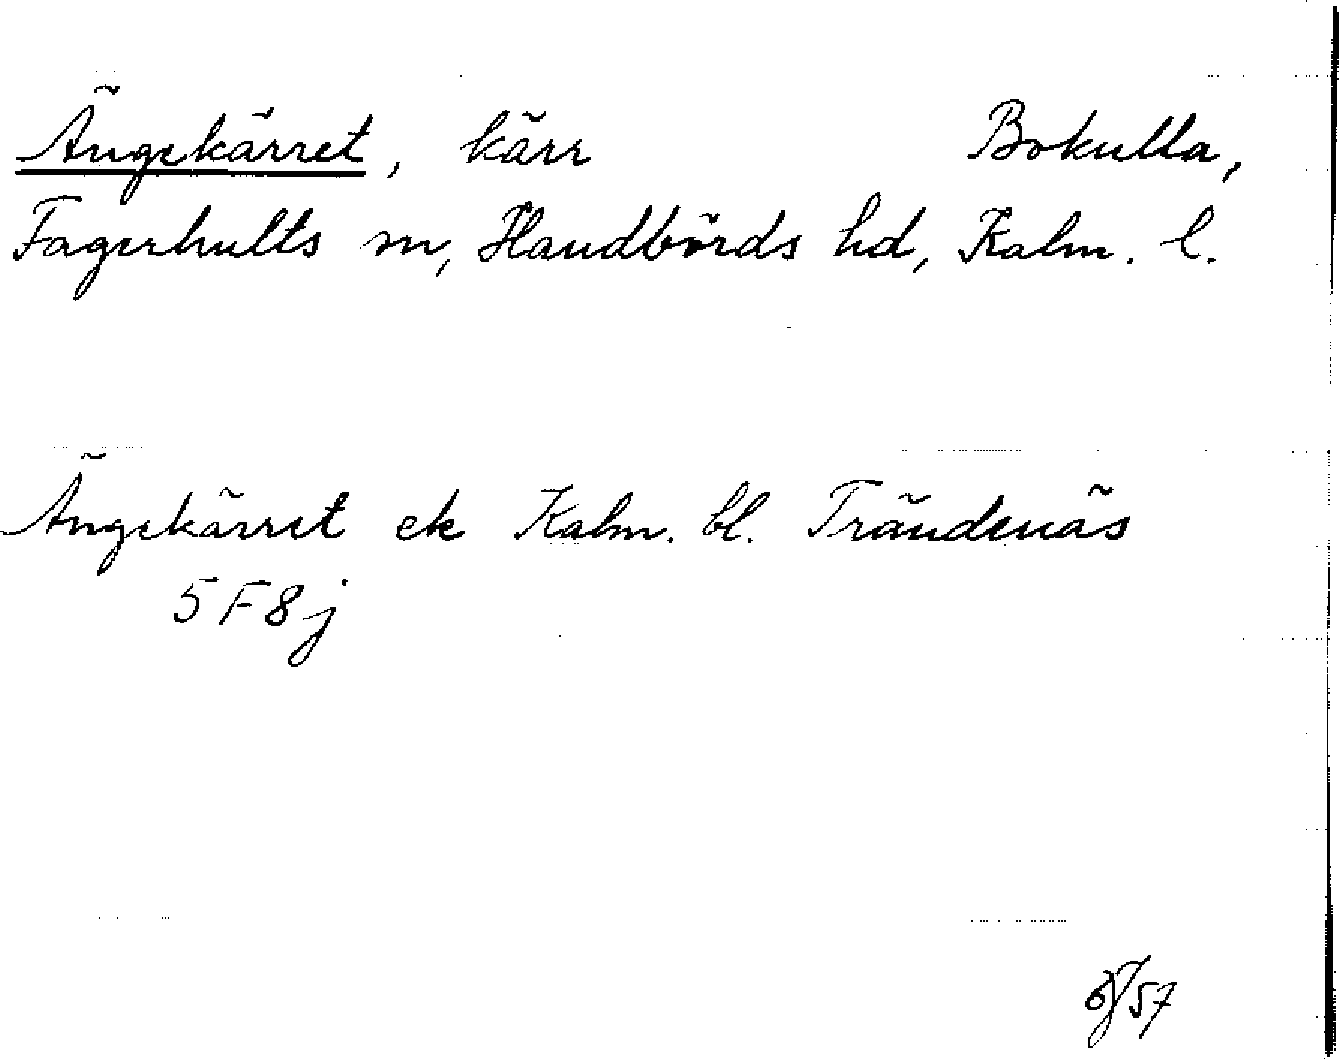 Ängekärret, kärr Bokulla,
Fagerhults sn, Handbörds hd, Kalm. l.
Ängekärret ek Kalm. bl. Trändenäs
5F8j